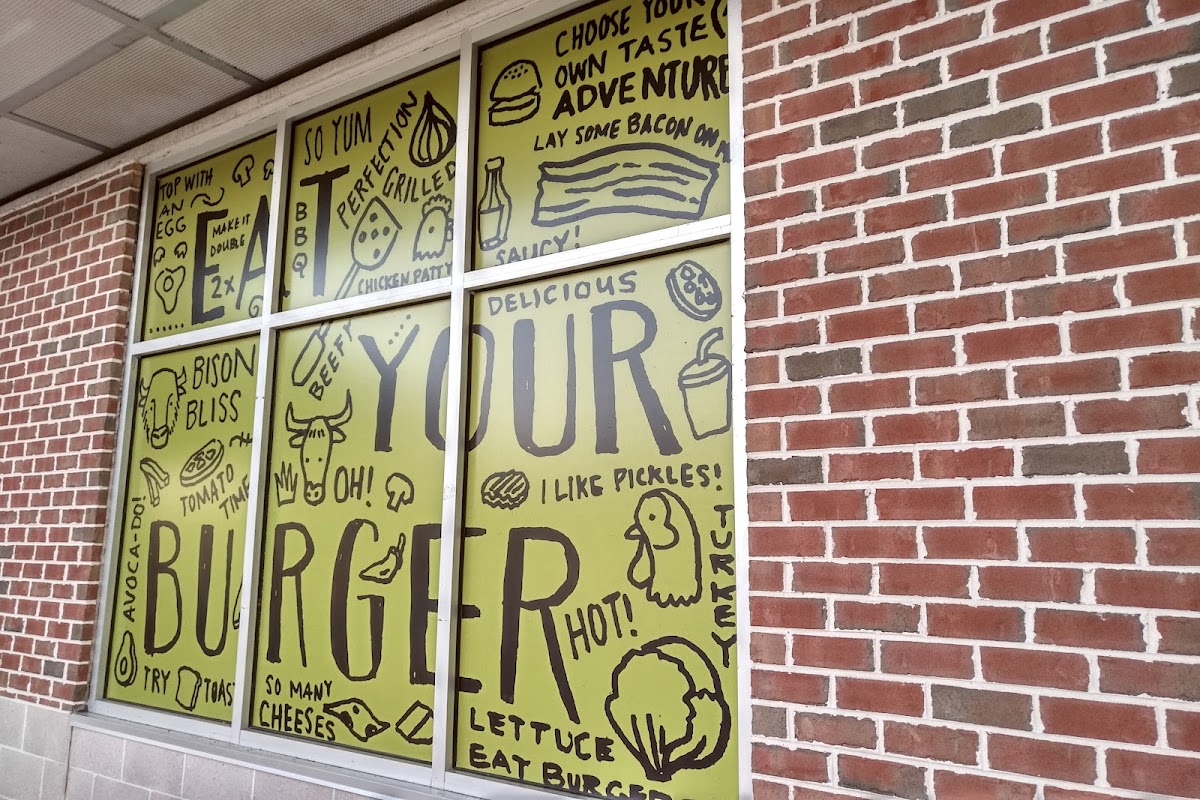 TOP WITH
AN
EGG
MAKE IT
DOUBLE
2x
EAT
SO YUM
PERFECTION
GRILLED
BBQ
CHICKEN PATTY
CHOOSE YOUR
OWN TASTE
ADVENTURE
LAY SOME BACON ON
SAUCY!
DELICIOUS
BEEFY
YOUR
BISON
BLISS
TOMATO
TIME
OH!
I LIKE PICKLES!
AVOCA-DO!
BURGER
HOT!
TURKEY
TRY TOAST
SO MANY
CHEESES
LETTUCE
EAT BURGERS